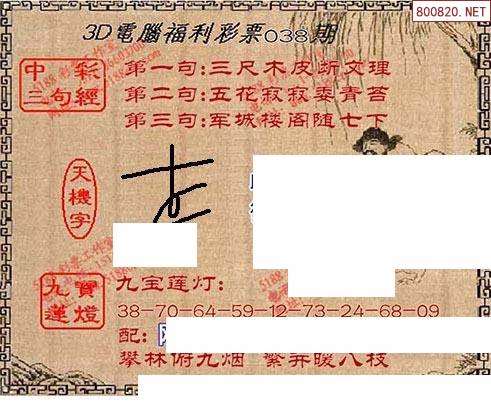 800820.NET
3D電腦福利彩票038期
中彩
三句經
第一句:三尺木皮断文理
第二句:五花寂寂委青苔
第三句:军城楼阁随七下
天機字
九寶蓮燈
九宝莲灯:
38-70-64-59-12-73-24-68-09
配:
攀林俯九烟 繁弄暖八枝